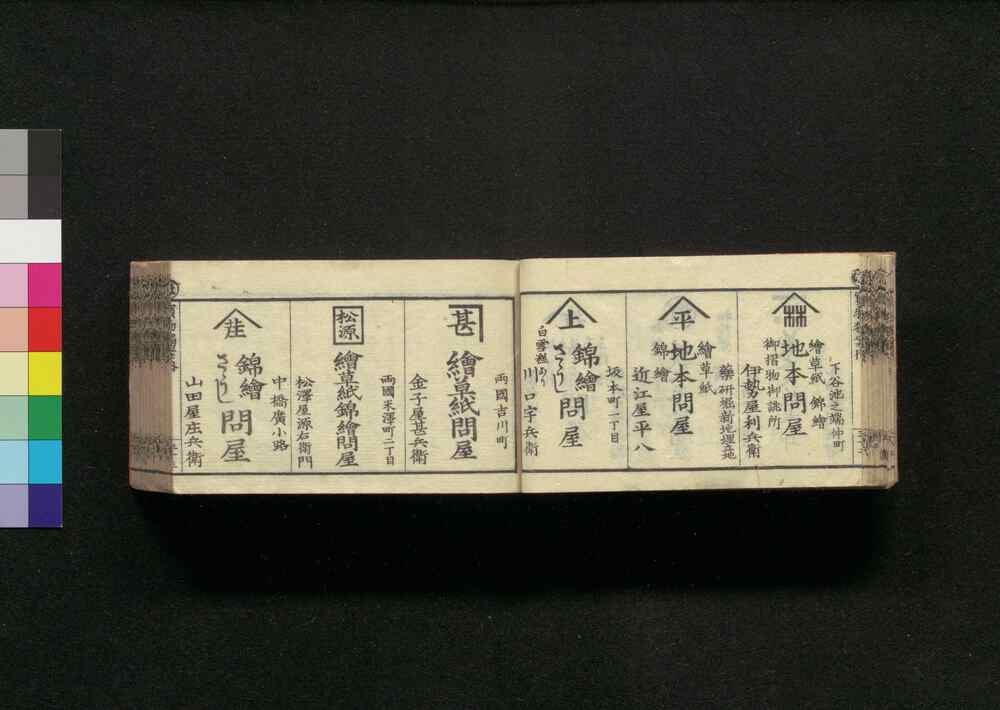 下谷池之端仲町
繪草紙 錦繪
地本問屋
御摺物御誂所
伊勢屋利兵衛
藥研堀新地埋立地
繪草紙
平
地本問屋
錦繪
近江屋平八
坂本町一丁目
上
錦繪
さうし
問屋
白雪糕あり
川口宇兵衛
両國吉川町
甚
繪草紙問屋
金子屋甚兵衛
両國米澤町二丁目
松源
繪草紙錦繪問屋
松澤屋源右衛門
中橋廣小路
錦繪
さうし
問屋
山田屋庄兵衛